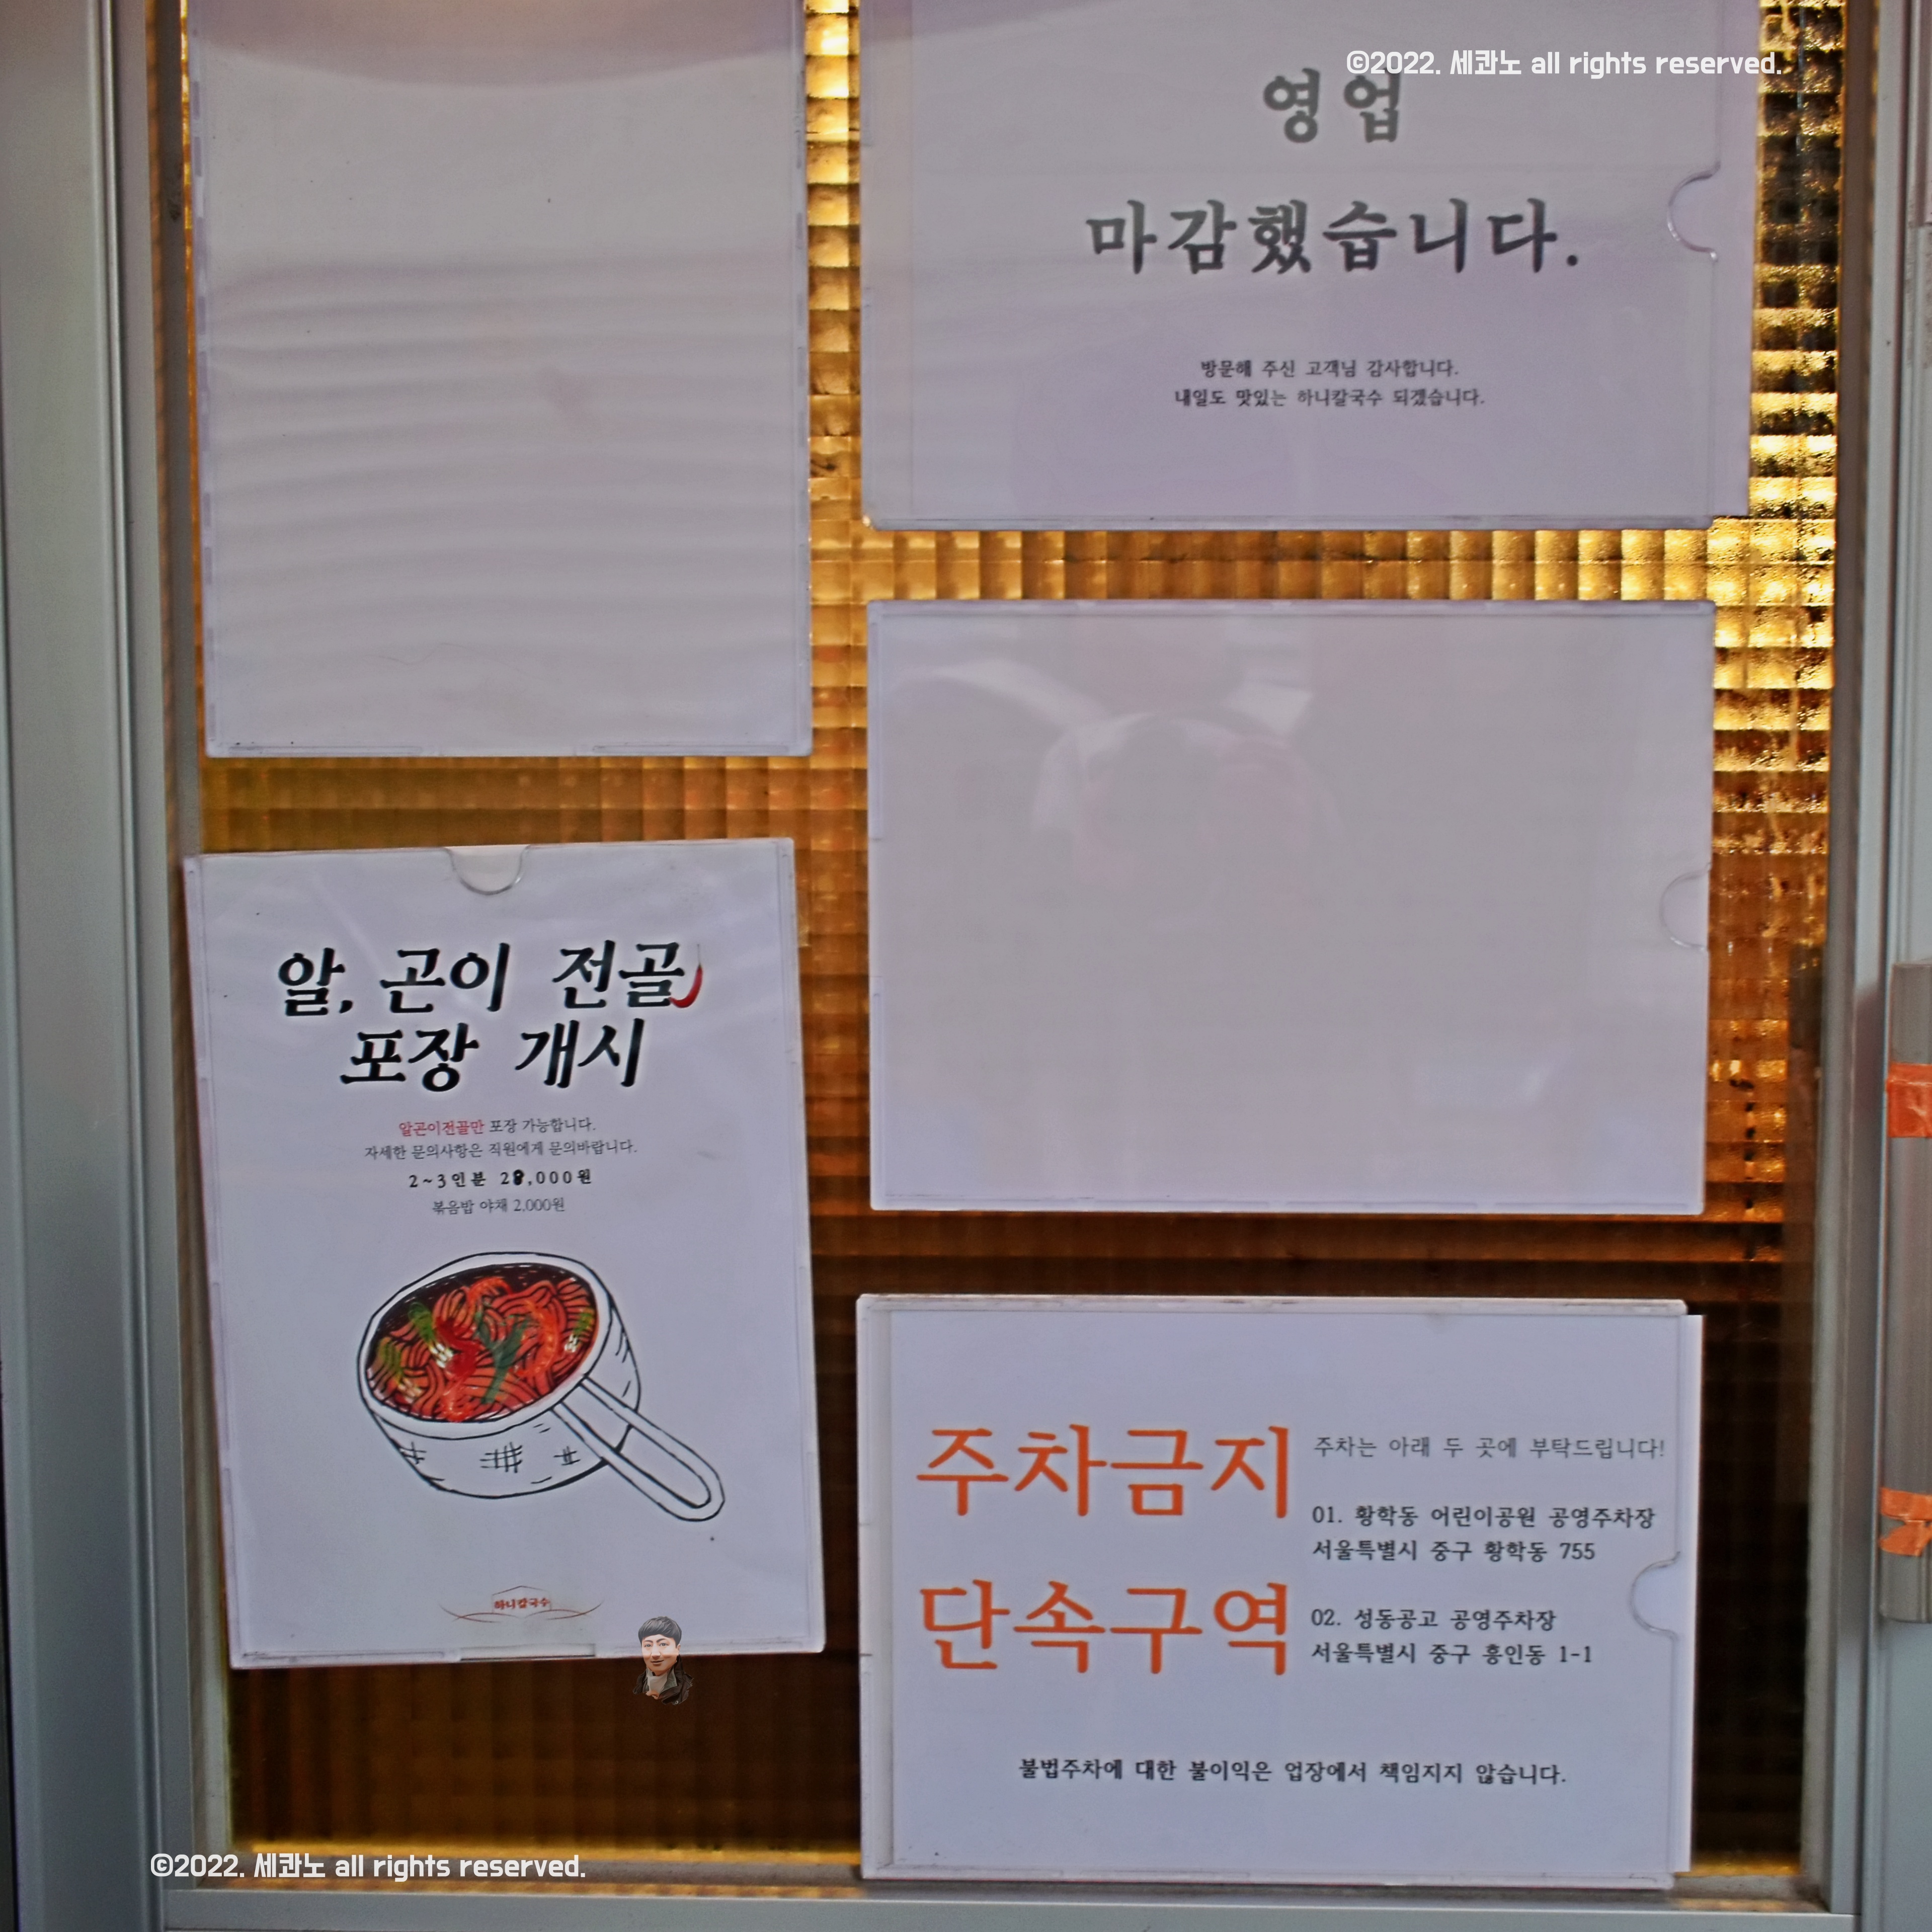 ©2022. 세콰노 all rights reserved.
영업
마감했습니다.
방문해 주신 고객님 감사합니다.
내일도 맛있는 하니칼국수 되겠습니다.
알, 곤이 전골
포장 개시
알곤이전골만 포장 가능합니다.
자세한 문의사항은 직원에게 문의바랍니다.
2~3인분 28,000원
볶음밥 야채 2,000원
하니칼국수
주차금지
단속구역
주차는 아래 두 곳에 부탁드립니다!
01. 황학동 어린이공원 공영주차장
서울특별시 중구 황학동 755
02. 성동공고 공영주차장
서울특별시 중구 흥인동 1-1
불법주차에 대한 불이익은 업장에서 책임지지 않습니다.
©2022. 세콰노 all rights reserved.